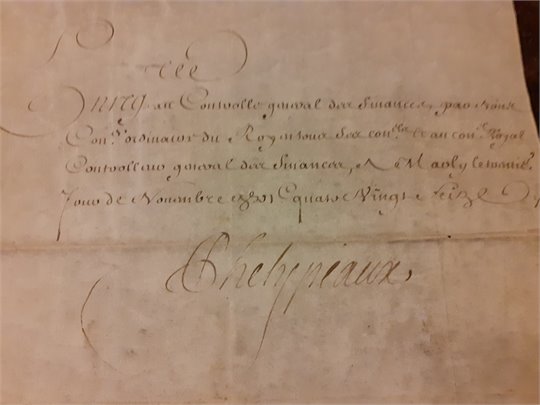 Enreg au Controlle general des finances, par Nous
Con.er ordinaire du Roy en tous ses con.ls et au con.l Royal
Controlleur general des finances, A Marly le
Jour de Novembre Quatre Vingt Seize
Phelypeaux